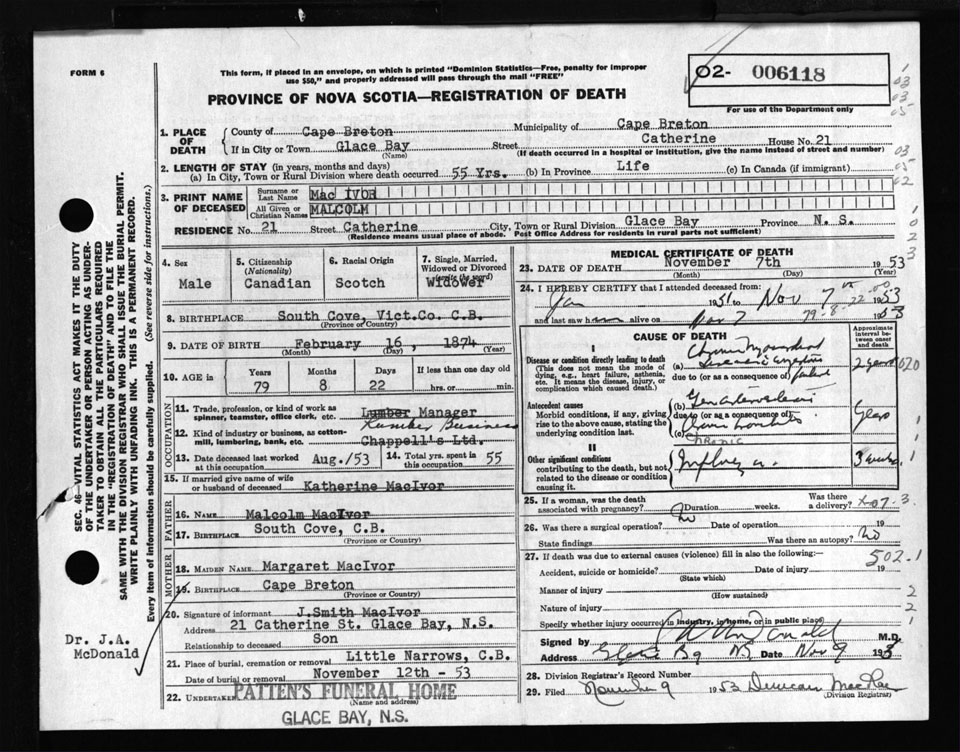 FORM 6
This form, if placed in an envelope, on which is printed "Dominion Statistics—Free, penalty for improper
use $50," and properly addressed will pass through the mail "FREE"
PROVINCE OF NOVA SCOTIA—REGISTRATION OF DEATH
02- 006118
For use of the Department only
1. PLACE OF DEATH
County of Cape Breton Municipality of Cape Breton
If in City or Town Glace Bay Street Catherine House No. 21
(Name) (If death occurred in a hospital or institution, give the name instead of street and number)
2. LENGTH OF STAY (in years, months and days)
(a) In City, Town or Rural Division where death occurred 55 Yrs. (b) In Province Life (c) In Canada (if immigrant)
3. PRINT NAME OF DECEASED
Surname or Last Name Mac IVOR
All Given or Christian Names MALCOLM
RESIDENCE No. 21 Street Catherine City, Town or Rural Division Glace Bay Province N. S.
(Residence means usual place of abode. Post Office Address for residents in rural parts not sufficient)
4. Sex
Male
5. Citizenship (Nationality)
Canadian
6. Racial Origin
Scotch
7. Single, Married, Widowed or Divorced (write the word)
Widower
8. BIRTHPLACE South Cove, Vict.Co. C.B.
(Province or Country)
9. DATE OF BIRTH February 16, 1874
(Month) (Day) (Year)
10. AGE in Years Months Days If less than one day
79 8 22 hrs. or min.
OCCUPATION
11. Trade, profession, or kind of work as spinner, teamster, office clerk, etc. Lumber Manager
12. Kind of industry or business, as cotton-mill, lumbering, bank, etc. Lumber Business
Chappell's Ltd.
13. Date deceased last worked at this occupation Aug./53
14. Total yrs. spent in this occupation 55
15. If married give name of wife or husband of deceased Katherine MacIvor
FATHER
16. Name Malcolm MacIvor
17. Birthplace South Cove, C.B.
(Province or Country)
MOTHER
18. Maiden Name Margaret MacIvor
19. Birthplace Cape Breton
(Province or Country)
20. Signature of informant J.Smith MacIvor
Address 21 Catherine St. Glace Bay, N.S.
Relationship to deceased Son
21. Place of burial, cremation or removal Little Narrows, C.B.
Date of burial or removal November 12th - 53
22. Undertaker PATTEN'S FUNERAL HOME
(Name and address)
GLACE BAY, N.S.
MEDICAL CERTIFICATE OF DEATH
23. DATE OF DEATH November 7th 1953
(Month) (Day) (Year)
24. I HEREBY CERTIFY that I attended deceased from:
Jan 1951 to Nov 7th 1953
and last saw him alive on Nov 7 1953
79-8-22
I CAUSE OF DEATH
Approximate interval between onset and death
Disease or condition directly leading to death
(This does not mean the mode of dying, e.g., heart failure, asthenia, etc. It means the disease, injury, or complication which caused death.)
(a) Chronic
due to (or as a consequence of) failure
2 years
Antecedent causes
Morbid conditions, if any, giving rise to the above cause, stating the underlying condition last.
(b)
due to (or as a consequence of)
(c)
CHRONIC
Years
II
Other significant conditions
contributing to the death, but not related to the disease or condition causing it.
Influenza
3 weeks
25. If a woman, was the death associated with pregnancy? Duration weeks. Was there a delivery?
26. Was there a surgical operation? No Date of operation 19
State findings Was there an autopsy? No
27. If death was due to external causes (violence) fill in also the following:—
502.1
Accident, suicide or homicide? Date of injury 19
(State which)
Manner of injury
(How sustained)
Nature of injury
Specify whether injury occurred in industry, in home, or in public place
Signed by M.D.
Address Glace Bay NS Date Nov 9 1953
28. Division Registrar's Record Number
29. Filed November 9 1953 Duncan MacRae
(Division Registrar)
SEC. 46—VITAL STATISTICS ACT MAKES IT THE DUTY
OF THE UNDERTAKER OR PERSON ACTING AS UNDER-
TAKER TO OBTAIN ALL THE PARTICULARS REQUIRED
IN THE "REGISTRATION OF DEATH" AND TO FILE THE
SAME WITH THE DIVISION REGISTRAR WHO SHALL ISSUE THE BURIAL PERMIT.
WRITE PLAINLY WITH UNFADING INK. THIS IS A PERMANENT RECORD.
Every item of information should be carefully supplied. (See reverse side for instructions.)
Dr. J.A.
McDonald